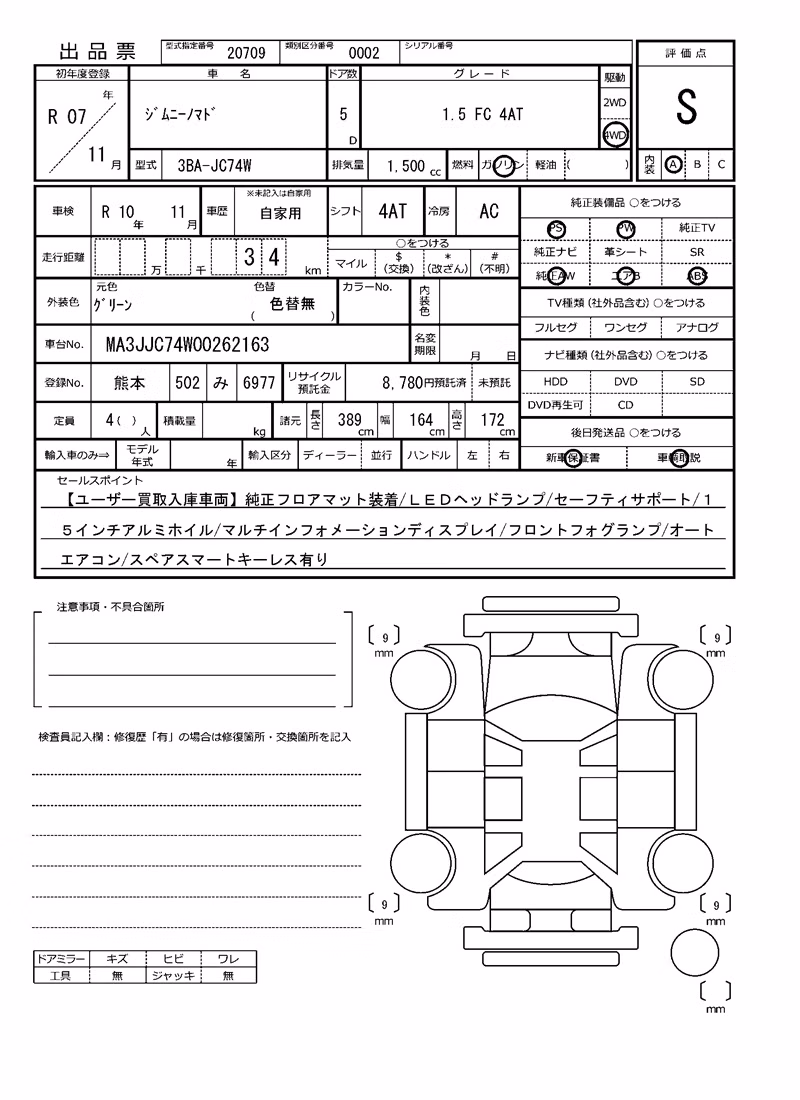 出品票 型式指定番号 20709 類別区分番号 0002 シリアル番号
評価点
初年度登録 車名 ドア数 グレード 駆動
R 07 年 ジムニーノマド 5 D 1.5 FC 4AT 2WD
4WD
S
11 月 型式 3BA-JC74W 排気量 1,500 cc 燃料 ガソリン 軽油 ( )
内装 A B C
車検 R 10 年 11 月 車歴 ※未記入は自家用 自家用 シフト 4AT 冷房 AC
純正装備品 ○をつける
PS PW 純正TV
純正ナビ 革シート SR
純正AW エアB ABS
走行距離 万 千 3 4 km
○をつける
マイル $(交換) *(改ざん) #(不明)
外装色 元色 グリーン 色替 色替無 ( ) カラーNo. 内装色
TV種類(社外品含む)○をつける
フルセグ ワンセグ アナログ
車台No. MA3JJC74W00262163 名変期限 月 日
ナビ種類(社外品含む)○をつける
HDD DVD SD
DVD再生可 CD
登録No. 熊本 502 み 6977 リサイクル預託金 8,780円預託済 未預託
定員 4( ) 人 積載量 kg 諸元 長さ 389 cm 幅 164 cm 高さ 172 cm
後日発送品 ○をつける
新車保証書 車輌取説
輸入車のみ⇒ モデル年式 年 輸入区分 ディーラー 並行 ハンドル 左 右
セールスポイント
【ユーザー買取入庫車両】純正フロアマット装着/LEDヘッドランプ/セーフティサポート/1
5インチアルミホイル/マルチインフォメーションディスプレイ/フロントフォグランプ/オート
エアコン/スペアスマートキーレス有り
注意事項・不具合箇所
〔 9 〕 mm
〔 9 〕 mm
検査員記入欄：修復歴「有」の場合は修復箇所・交換箇所を記入
〔 9 〕 mm
〔 9 〕 mm
ドアミラー キズ ヒビ ワレ
工具 無 ジャッキ 無
〔 〕 mm